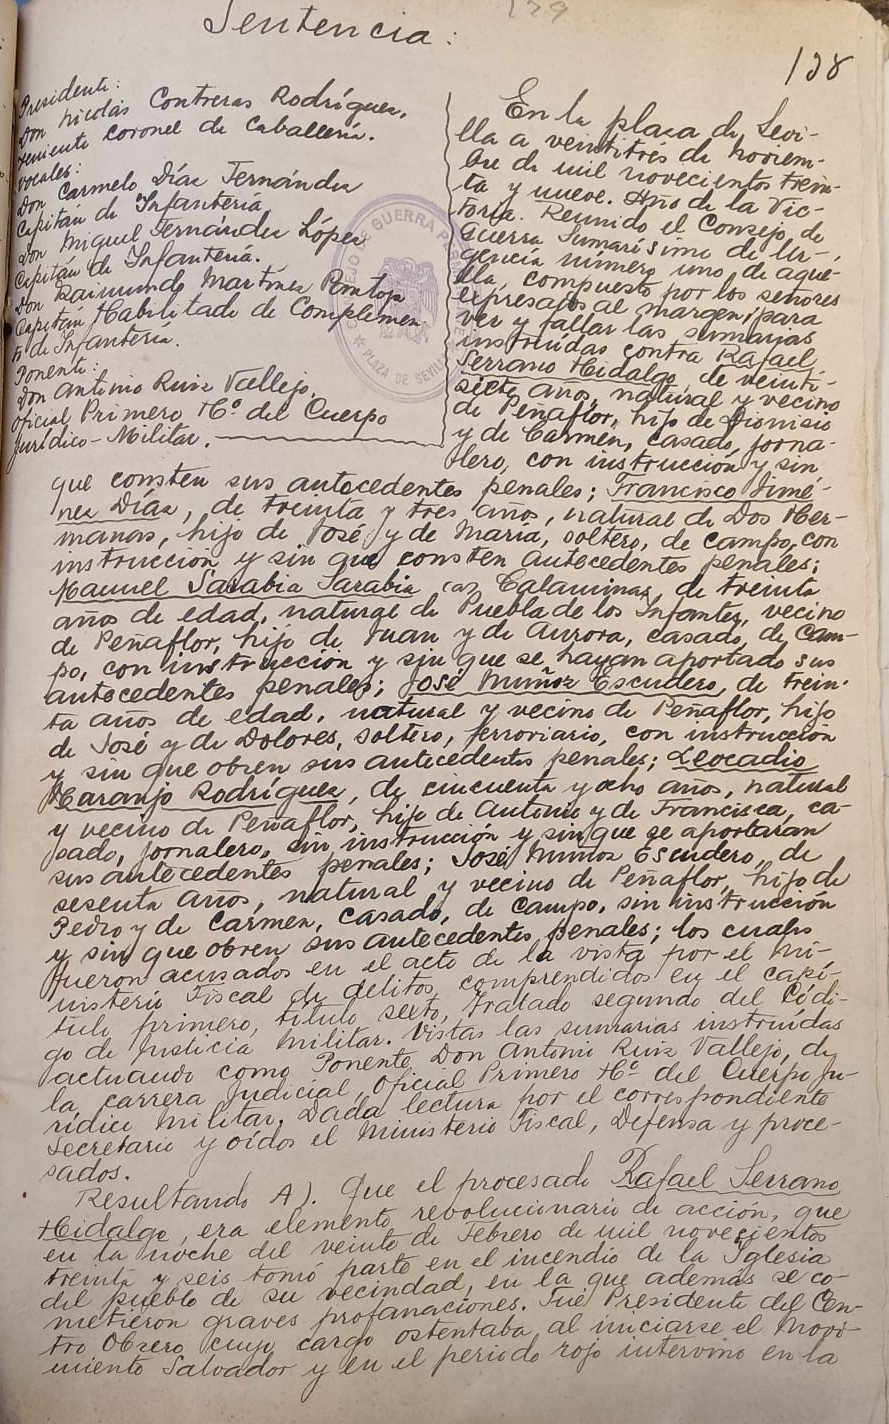 129
Sentencia:
138
Presidente:
Don Nicolás Contreras Rodríguez,
Teniente Coronel de Caballería.
Vocales:
Don Carmelo Díaz Fernández
Capitán de Infantería
Don Miguel Fernández López
Capitán de Infantería.
Don Raimundo Martínez
Capitán Habilitado de Complemen-
to de Infantería.
Ponente:
Don Antonio Ruiz Vallejo,
Oficial Primero Hº del Cuerpo
Jurídico-Militar.
CONSEJO DE GUERRA PERMANENTE
PLAZA DE SEVILLA
En la plaza de Sevi-
lla a veintitrés de noviem-
bre de mil novecientos trein-
ta y nueve. Año de la Vic-
toria. Reunido el Consejo de
Guerra Sumarísimo de Ur-
gencia número uno de aque-
lla, compuesto por los señores
expresados al margen, para
ver y fallar las sumarias
instruídas contra Rafael
Serrano Hidalgo, de veinti-
siete años, natural y vecino
de Peñaflor, hijo de Dionisio
y de Carmen, casado, jorna-
lero, con instrucción y sin
que consten sus antecedentes penales; Francisco Jimé-
nez Díaz, de treinta y tres años, natural de Dos Her-
manas, hijo de José y de María, soltero, de campo, con
instrucción y sin que consten antecedentes penales;
Manuel Sarabia Sarabia (a) Calaminas, de treinta
años de edad, natural de Puebla de los Infantes, vecino
de Peñaflor, hijo de Juan y de Aurora, casado, de cam-
po, con instrucción y sin que se hayan aportado sus
antecedentes penales; José Muñoz Escudero, de trein-
ta años de edad, natural y vecino de Peñaflor, hijo
de José y de Dolores, soltero, ferroviario, con instrucción
y sin que obren sus antecedentes penales; Leocadio
Naranjo Rodríguez, de cincuenta y ocho años, natural
y vecino de Peñaflor, hijo de Antonio y de Francisca, ca-
sado, jornalero, sin instrucción y sin que se aportaran
sus antecedentes penales; José Muñoz Escudero, de
sesenta años, natural y vecino de Peñaflor, hijo de
Pedro y de Carmen, casado, de campo, sin instrucción
y sin que obren sus antecedentes penales; los cuales
fueron acusados en el acto de la vista por el Mi-
nisterio Fiscal de delitos comprendidos en el capí-
tulo primero, título sexto, Tratado segundo del Códi-
go de Justicia Militar. Vistas las sumarias instruídas
actuando como Ponente Don Antonio Ruiz Vallejo, de
la carrera Judicial, Oficial Primero Hº del Cuerpo Ju-
rídico Militar. Dada lectura por el correspondiente
Secretario y oídos el Ministerio Fiscal, Defensa y proce-
sados.
Resultando A). Que el procesado Rafael Serrano
Hidalgo, era elemento revolucionario de acción, que
en la noche del veinte de Febrero de mil novecientos
treinta y seis tomó parte en el incendio de la Iglesia
del pueblo de su vecindad, en la que además se co-
metieron graves profanaciones. Fué Presidente del Cen-
tro Obrero cuyo cargo ostentaba al iniciarse el Movi-
miento Salvador y en el periodo rojo intervino en la